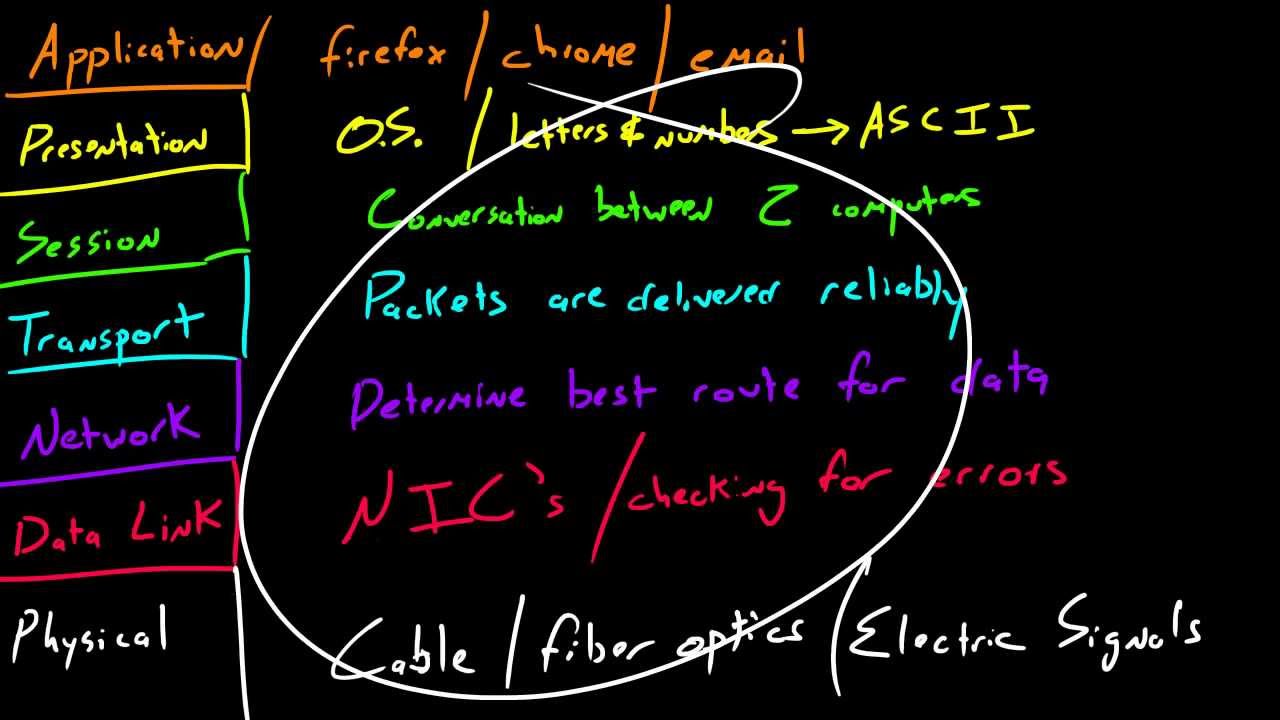 Application / firefox / chrome / email
Presentation O.S. / letters & numbers → ASCII
Session Conversation between 2 computers
Transport Packets are delivered reliably
Network Determine best route for data
Data Link NIC's / checking for errors
Physical Cable / fiber optics / Electric Signals